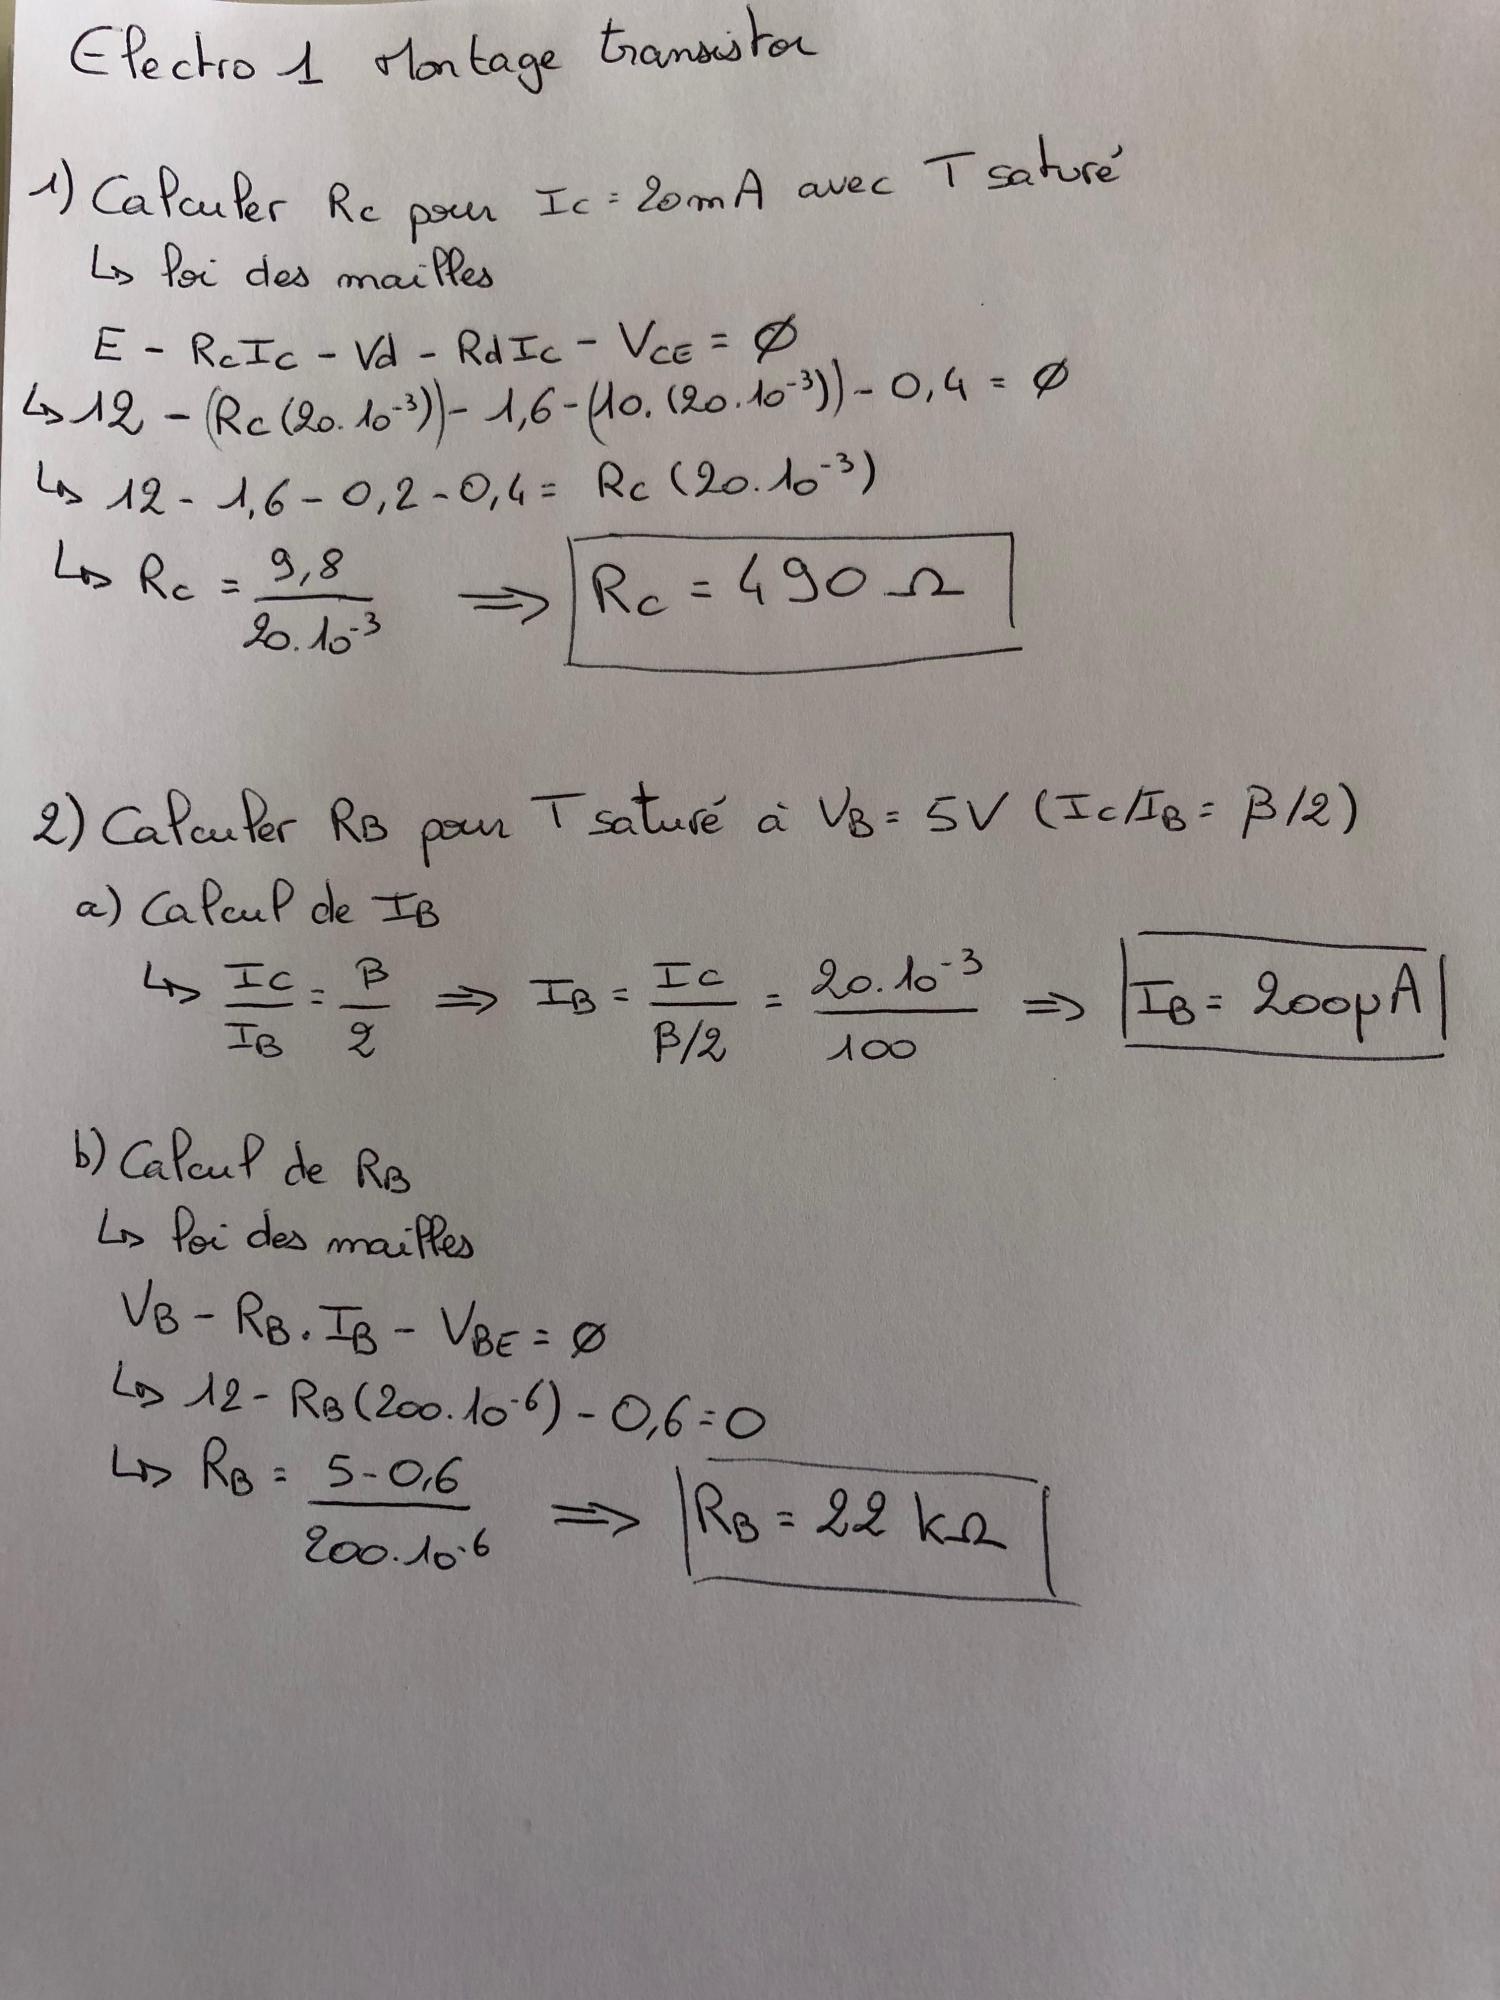 Electro 1 Montage transistor
1) Calculer Rc pour Ic = 20mA avec T saturé
↳ loi des mailles
E - RcIc - Vd - RdIc - VCE = Ø
↳ 12 - (Rc(20.10⁻³)) - 1,6 - (10.(20.10⁻³)) - 0,4 = Ø
↳ 12 - 1,6 - 0,2 - 0,4 = Rc (20.10⁻³)
↳ Rc = 9,8 / 20.10⁻³ ⇒ Rc = 490 Ω
2) Calculer RB pour T saturé à VB = 5V (Ic/IB = β/2)
a) Calcul de IB
↳ Ic/IB = β/2 ⇒ IB = Ic / β/2 = 20.10⁻³ / 100 ⇒ IB = 200µA
b) Calcul de RB
↳ loi des mailles
VB - RB.IB - VBE = Ø
↳ 12 - RB(200.10⁻⁶) - 0,6 = 0
↳ RB = 5-0,6 / 200.10⁻⁶ ⇒ RB = 22 kΩ